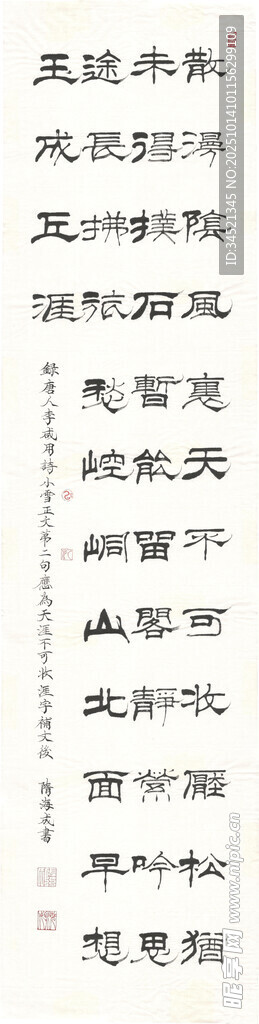 散漫陰風裏天不可收壓松猶
未得撲石暫能留閣靜縈吟思
途長拂旅愁崆峒山北面早想
玉成丘涯
錄唐人李咸用詩小雪正文第二句應為天涯不可收涯字補文後 隋海成書
ID:34521345 NO:20251014101156299109
昵享网 www.nipic.cn